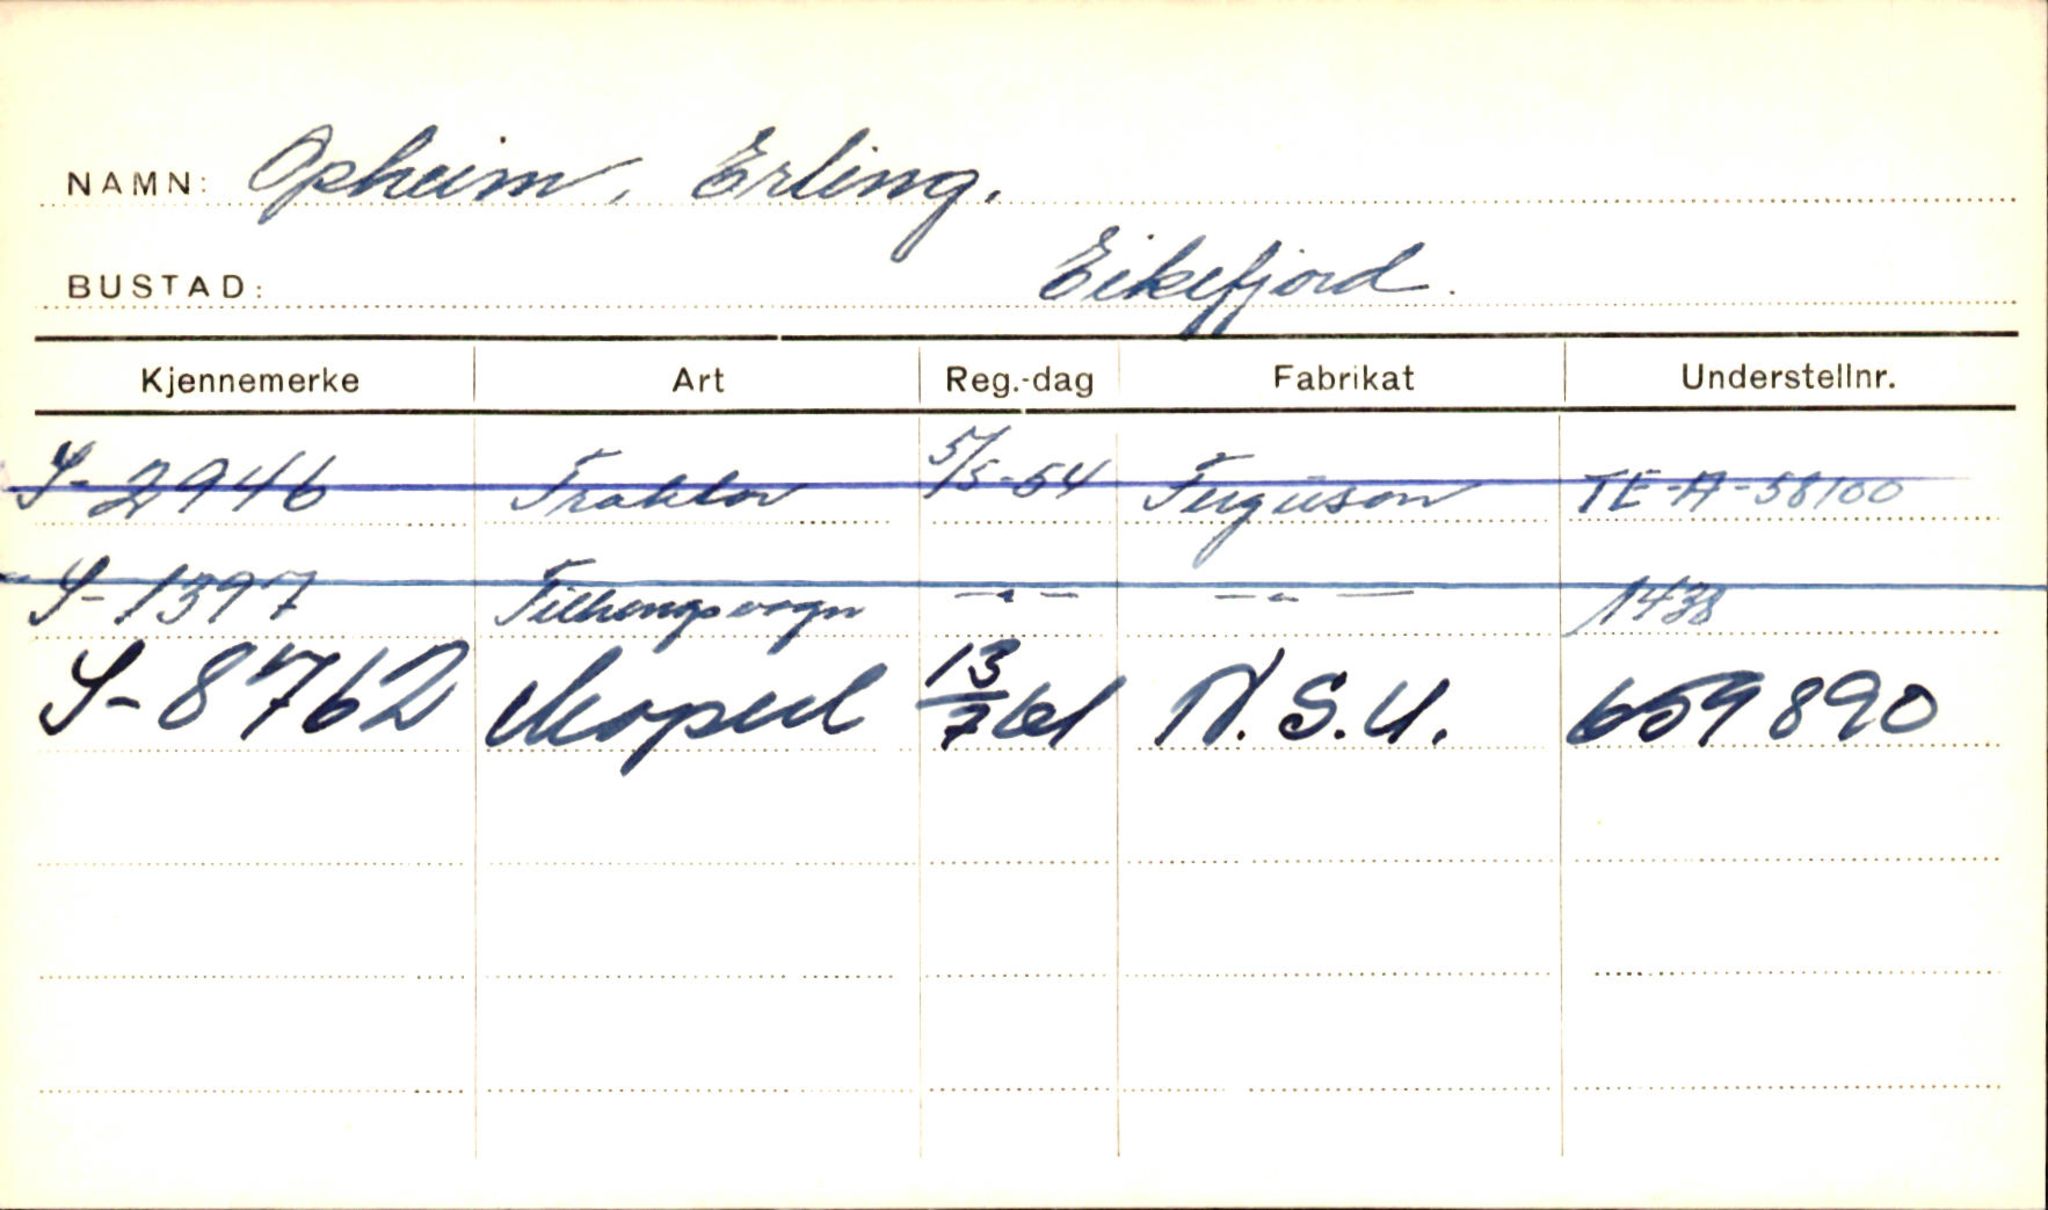 NAMN: Opheim, Erling.
BUSTAD: Eikefjord.
Kjennemerke Art Reg.-dag Fabrikat Understellnr.
S-2946 Traktor 5/5-54 Ferguson TE-A-58100
S-1397 Tilhengsvogn -"- -"- 1438
S-8762 Moped 13/7 61 N.S.U. 659890